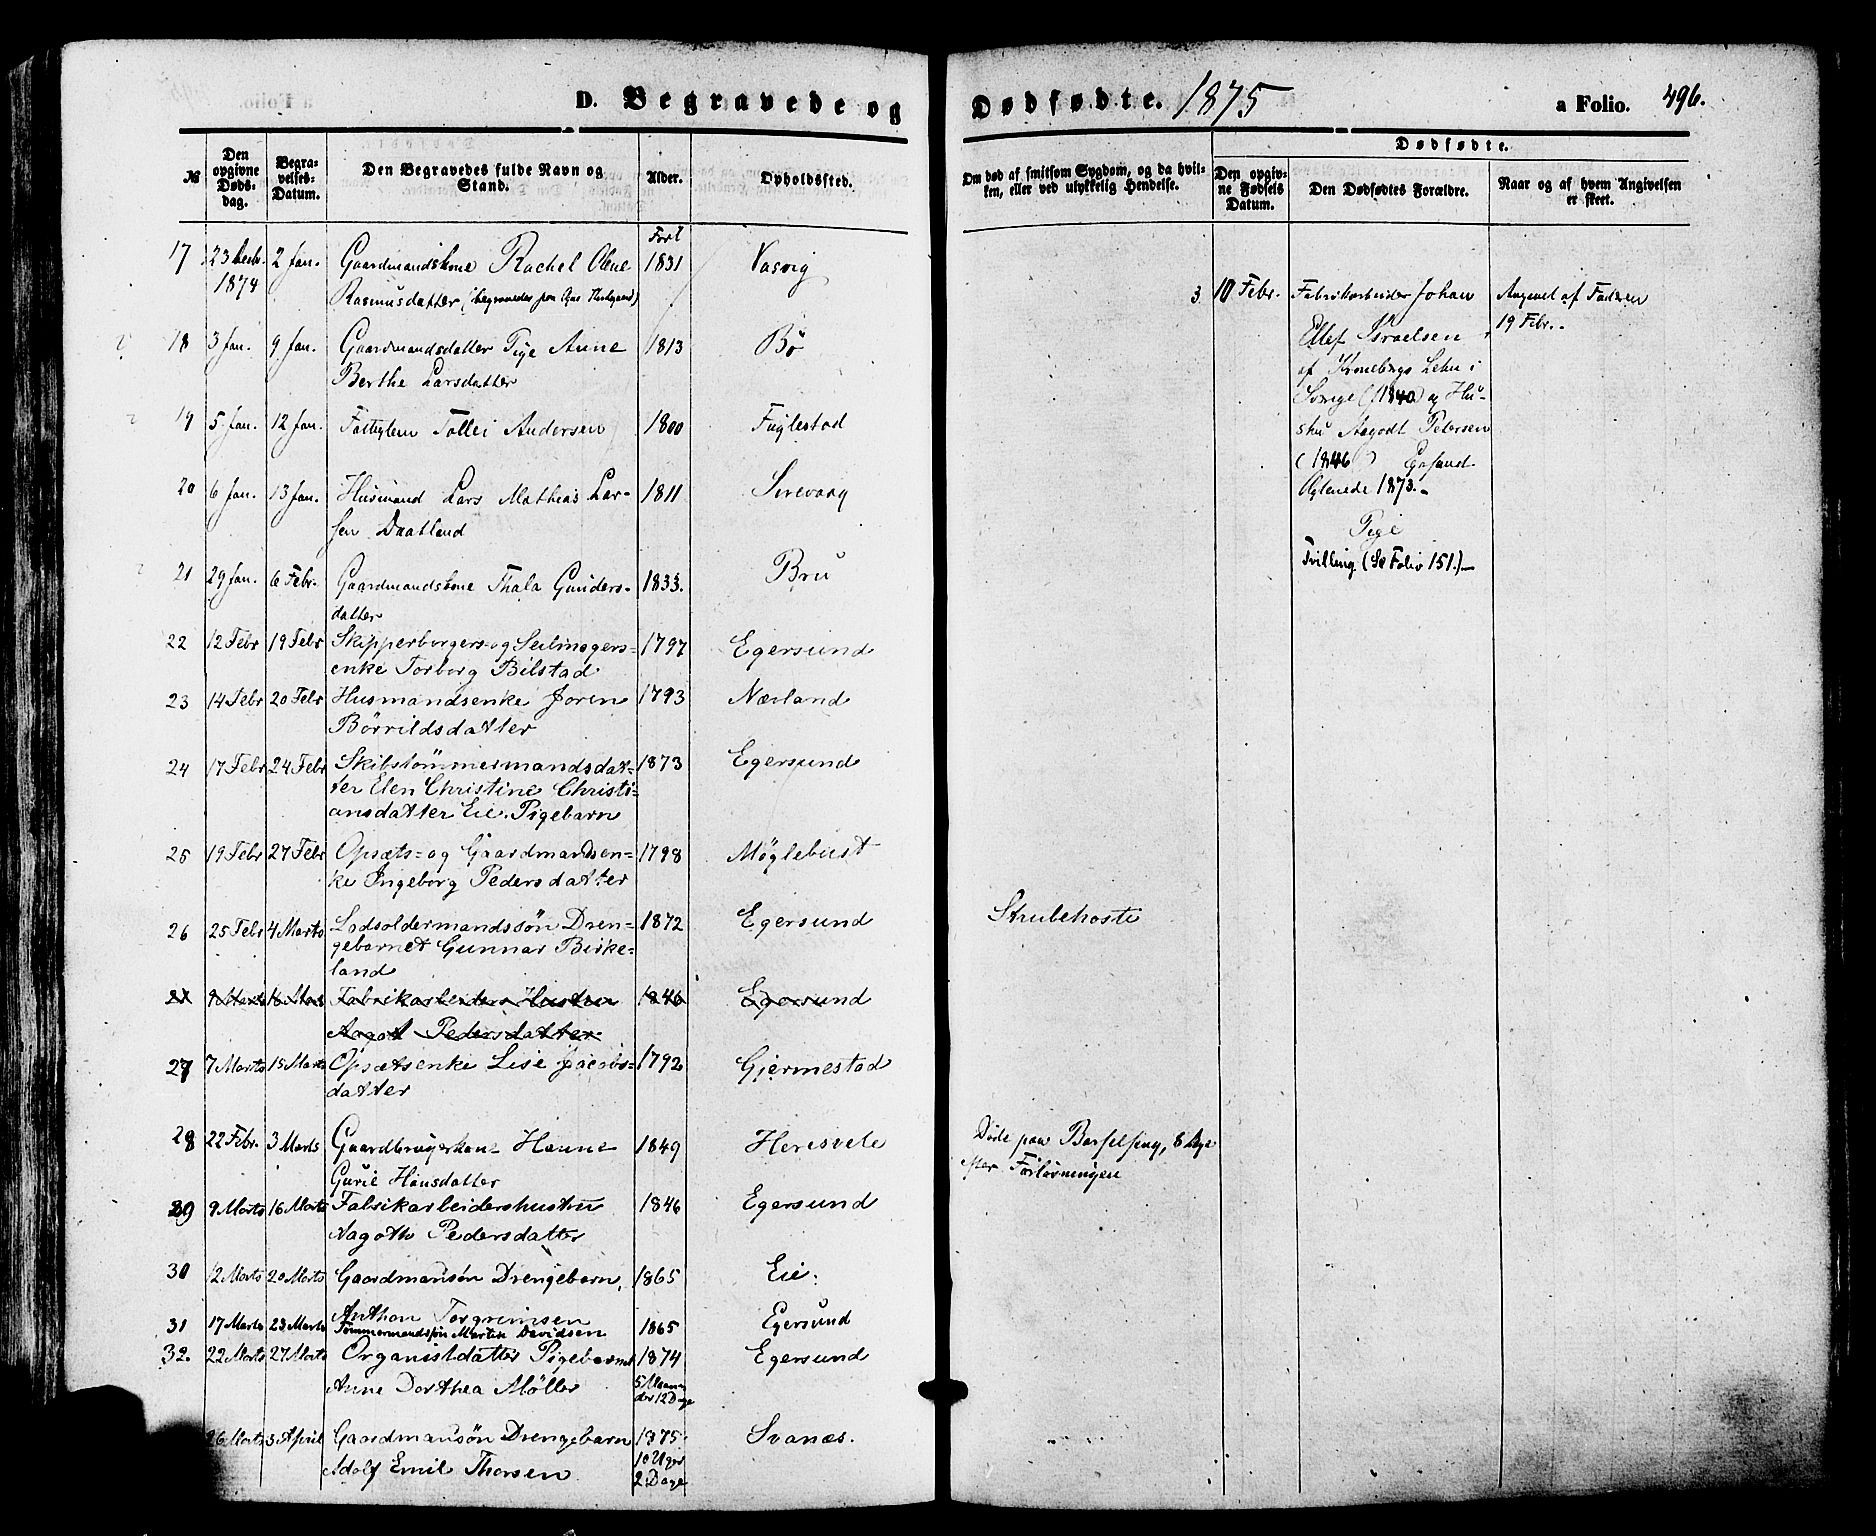 D. Begravede og
Dødfødte. 1875
a Folio. 496.
№
Den opgivne Døds-dag.
Begra-velses-Datum.
Den Begravedes fulde Navn og Stand.
Alder.
Opholdssted.
Om død af smitsom Sygdom, og da hvil-
ken, eller ved ulykkelig Hendelse.
Dødfødte.
Den opgiv-ne Fødsels Datum.
Den Dødfødtes Forældre.
Naar og af hvem Angivelsen er skeet.
17 23 Decb. 1874 2 Jan. Gaardmandskone Rachel Oline 1831 Vasvig
Rasmusdatter
18 3 Jan. 9 Jan. Gaardmandsdatter Pige Anne 1813 Bø
Berthe Larsdatter
19 5 Jan. 12 Jan. Tollei Andersen 1800 Fuglestad
20 6 Jan. 13 Jan. Husmand Lars Mathias Lar- 1811 Sirevaag
sen Daatland
21 29 Jan. 6 Febr. Gaardmandskone Thala Gunders- 1833. Bru
datter
22 12 Febr 19 Febr Skipperborgers- og Seilmagers- 1797 Egersund
enke Torborg Bilstad
23 14 Febr 20 Febr Husmandsenke Joren 1793 Nærland
Börrildsdatter
24 17 Febr 24 Febr Skibstömmermandsdat= 1873 Egersund
ter Elen Christine Christi=
ansdatter Eie. Pigebarn
25 19 Febr 27 Febr Opsæts= og Gaardmandsen= 1798 Møglebust
ke Ingeborg Pedersdatter
26 25 Febr 4 Marts Lodsoldermandssön Dren= 1872 Egersund Strubehoste
gebarnet Gunnar Birke=
land
27 9 Marts 16 Marts Fabrikarbeiders Hustru 1846 Egersund
Aagot Pedersdatter
27 7 Marts 15 Marts Opsætsenke Lise Jacobs= 1792 Gjermestad
datter
28 22 Febr. 3 Marts Gaardbrugerkone Hanne 1849 Heresvele Døde paa Barselseng, 8 Dage
Gurie Hansdatter efter Forløsningen
29 9 Marts 16 Marts Fabrikarbeidershustru 1846 Egersund
Aagoth Pedersdatter
30 12 Marts 20 Marts Gaardmansön Drengebarn, 1865 Eie.
Anthon Torgrimsen
31 17 Marts 23 Marts Tømmermandssøn Martin Davidsen 1865 Egersund
32. 22 Marts 27 Marts Organistdatter Pigebarnet 1874 Egersund
Anne Dorthea Möller 5 Maane-der 12 Dage
26 Marts 3 April Gaardmansön Drengebarn 1875. Svanæs.
Adolf Emil Thorsen 10 Uger
2 Dage
3 10 Febr. Fabrikarbeider Johan
Ellef Israelsen
af Kronebergs Lehn i
Sverige (1840) og Hu-
stru Aagodt Petersen
(1846) Egersund.
Ægteviede 1873.-
Pige
Tvilling (Se Folio 151.)-
Angivet af Faderen
19 Febr.-